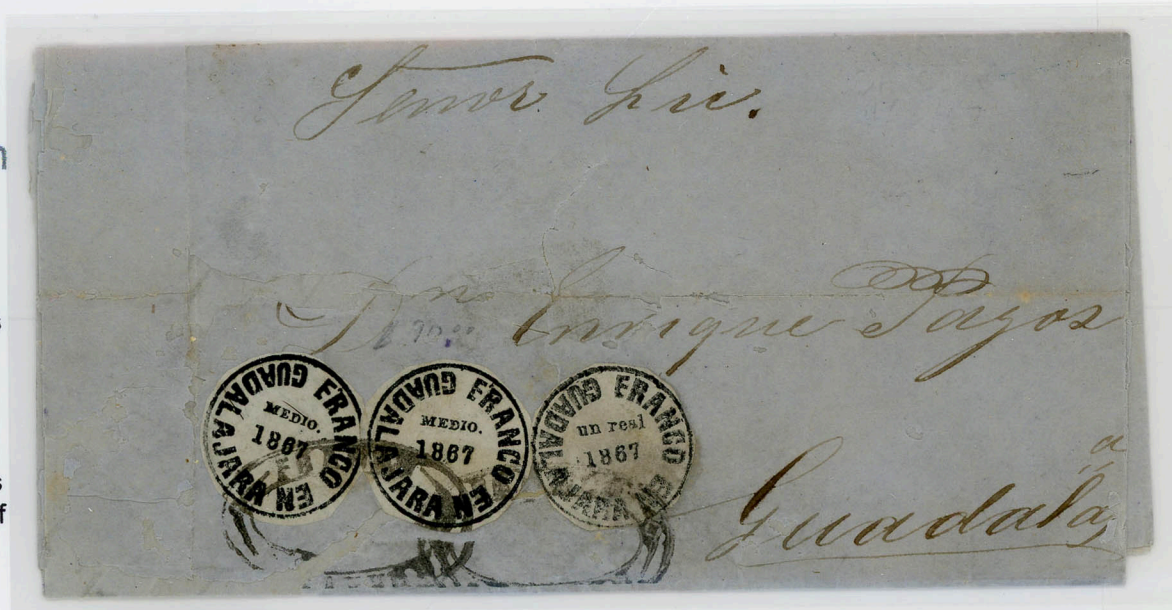 Señor Lic.
Dn Enrique Pazos
Guadala a
FRANCO EN GUADALAJARA
MEDIO.
1867
FRANCO EN GUADALAJARA
MEDIO.
1867
FRANCO EN GUADALAJARA
un real
1867